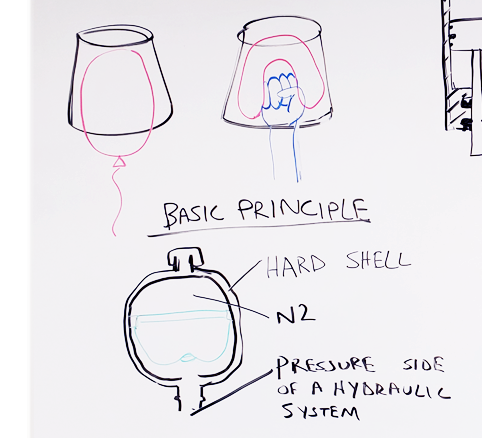 BASIC PRINCIPLE
HARD SHELL
N2
PRESSURE SIDE
OF A HYDRAULIC
SYSTEM